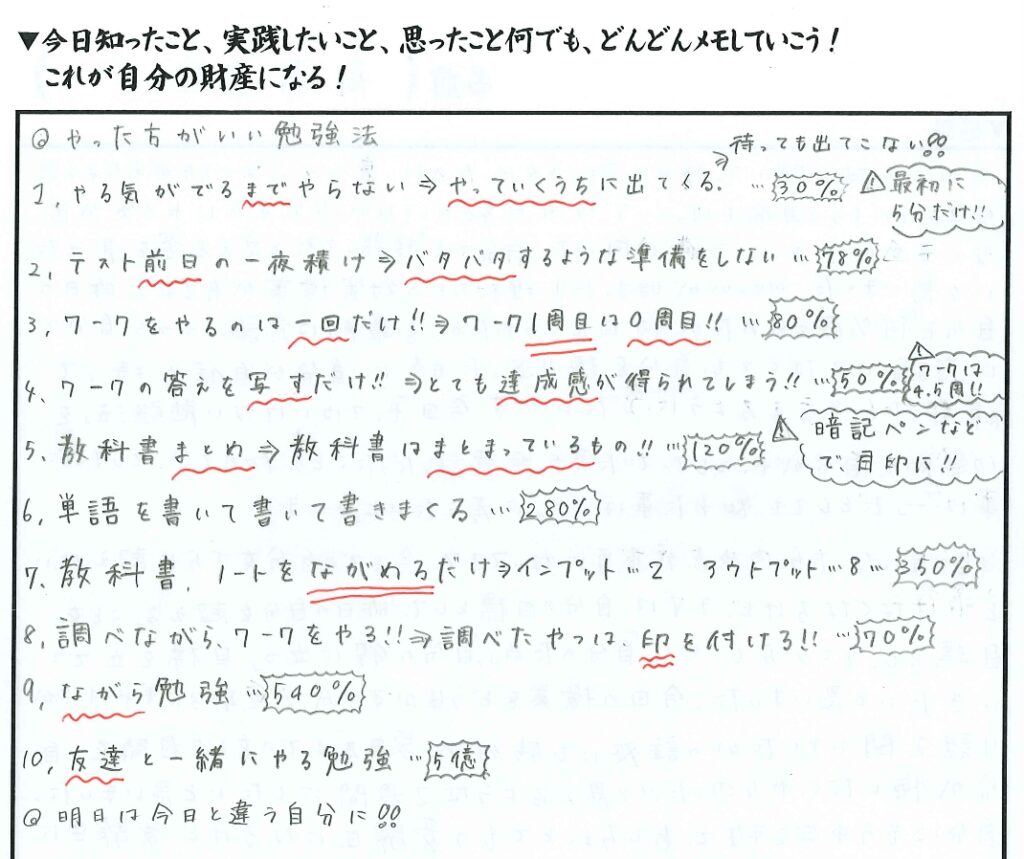 ▼今日知ったこと、実践したいこと、思ったこと何でも、どんどんメモしていこう！
これが自分の財産になる！
◎やった方がいい勉強法
⇒待っても出てこない!!
1, やる気がでるまでやらない⇒やっていくうちに出てくる. …30% ⚠最初に
5分だけ!!
2, テスト前日の一夜積け⇒バタバタするような準備をしない…78%
3, ワークをやるのは一回だけ!!⇒ワーク1周目は0周目!! …80%
4, ワークの答えを写すだけ!! ⇒とても達成感が得られてしまう!!…50% ⚠ワークは
4.5周!!
5, 教科書まとめ⇒教科書はまとまっているもの!!…120% ⚠暗記ペンなど
で目印は!!
6, 単語を書いて書いて書きまくる…280%
7, 教科書, ノートをながめるだけ⇒インプット…2 アウトプット…8…350%
8, 調べながら, ワークをやる!!⇒調べたやつは, 印を付けろ!! …70%
9, ながら勉強…540%
10, 友達と一緒にやる勉強…5億
◎明日は今日と違う自分に!!